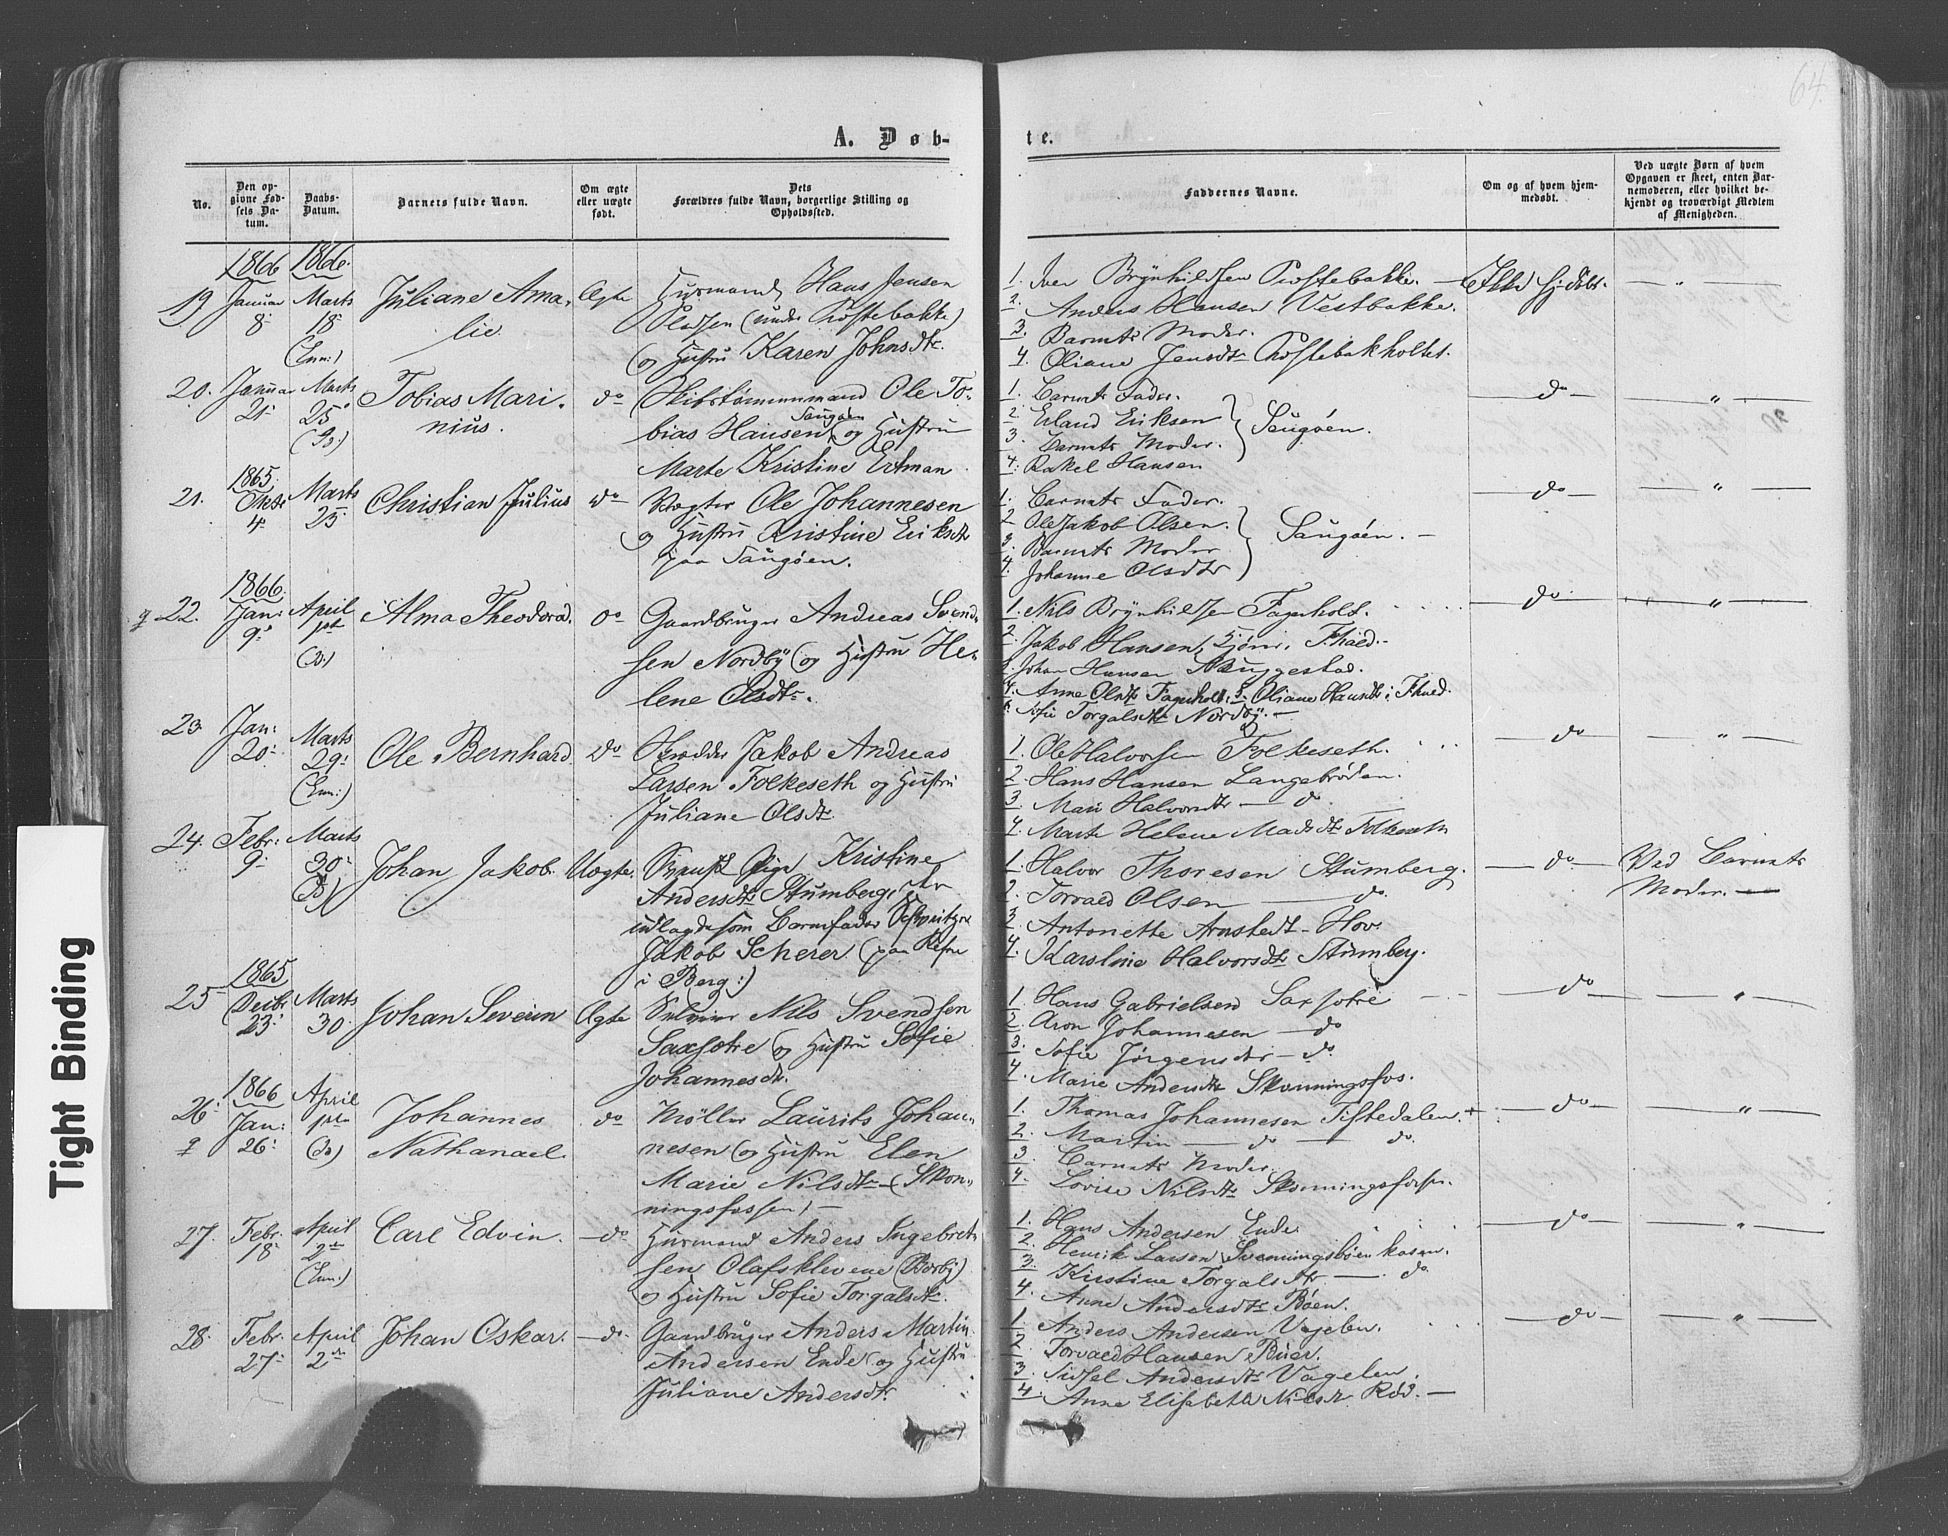 64.
A. Døb-
te.
No.
Den op-
givne Fød-
sels Da-
tum.
Daabs-
Datum.
Barnets fulde Navn.
Om ægte
eller uægte
født.
Dets
Forældres fulde Navn, borgerlige Stilling og
Opholdssted.
Faddernes Navne.
Om og af hvem hjem-
medøbt.
Ved uægte Børn af hvem
Opgaven er skeet, enten Bar-
nemoderen, eller hvilket be-
kjendt og troværdigt Medlem
af Menigheden.
1866 1866.
19 Januar 8 Marts 18 (Enn:)
Juliane Ama-
lie.
Ægte
Husmand Hans Jensen
Pladsen (under Toftebakke)
og Hustru Karen Johnsdtr
1. Iver Brynhildsen Toftebakke. —
2. Anders Hansen Vestbakke.
3. Barnets Moder.
4. Oliane Jensdtr
Ikke hj. døbt. — " —
20. Januar 21 Marts 25 (Is:)
Tobias Mari-
nius.
do
Skibstømmermand Ole To-
bias Hansen Saugøen og Hustru
Marte Kristine Ertman
1. Barnets Fader.
2. Erland Eriksen
3. Barnets Moder.
4. Rakel Hansen
Saugøen.
— do — — " —
1865.
21. Oktr 4. Marts 25
Christian Julius
do
Vægter Ole Johannesen
og Hustru Kristine Eriksdtr
paa Saugøen.
1. Barnets Fader.
2. Ole Jakob Olsen.
3. Barnets Moder
4. Johanne Olsdtr
Saugøen. —
— do — — " —
1866.
22. Jan: 9 April 1st (Is:)
Alma Theodora.
do
Gaardbruger Andreas Svend-
sen Nordby og Hustru He-
lene Olsdtr.
1. Nils Brynhildsen Fagerholt.
2. Jakob Hansen,
3. Johan Hansen Skuggestad.
4. Anne Olsdtr Fagerholt. 5. Oliane Hansdtr
6. Sofie Torgalsdtr Nordby. —
— do — — " —
23. Jan: 20 Marts 29 (Enn:)
Ole Bernhard
do
Skrædder Jakob Andreas
Larsen Folkeseth og Hustru
Juliane Olsdtr
1. Ole Halvorsen Folkeseth.
2. Hans Hansen Langebrøden.
3. Mari Halvorsdtr — do
4. Marte Helene Madsdtr Folkeseth
— do — — " —
24. Febr: 9 Marts 30 (Is)
Johan Jakob.
Uægte.
Pige Kristine
Andersdtr Stumberg,
udlagde som Barnefader Schweitzer
Jakob Scherer (paa
i Berg:)
1. Halvor Thoresen Stumberg.
2. Torvald Olsen — do.
3. Antonette Arnstedt — Hov.
4. Karoline Halvorsdtr Stumberg.
— do — Ved Barnets
Moder. —
1865
25 Decbr 23. Marts 30.
Johan Severin
Ægte
Selveier Nils Svendsen
Saxsotre og Hustru Sofie
Johannesdtr.
1. Hans Gabrielsen
2. Aron Johannesen — do
3. Sofie Jørgensdtr — do.
4. Marie Andersdtr Skonningsfos.
— do — — " —
1866
26. Jan: 26. April 1ste (Is)
Johannes
Nathanael.
do
Møller Laurits Johan-
nesen og Hustru Elen
Marie Nilsdtr — (Skon-
ningsfossen) —
1. Thomas Johannesen Tistedalen. +
2. Martin — do — do.
3. Barnets Moder.
4. Lovise Nilsdtr Skonningsfossen.
— do — — " —
27. Febr. 18 April 2den (Enn:)
Carl Edvin.
— do
Husmand Anders Ingebret-
sen Olafsklevene (Børby)
og Hustru Sofie Torgalsdtr.
1. Hans Andersen Ende.
2. Henrik Larsen
3. Kirstine Torgalsdtr — do
4. Anne Andersdtr Bøen.
— do — — " —
28. Febr. 27 April 2den
Johan Oskar.
— do.
Gaardbruger Anders Martin
Andersen Ende og Hustru
Juliane Andersdtr.
1. Anders Andersen
2. Torvald Hansen Buer.
3. Sidsel Andersdtr Vagelen.
4. Anne Elisabeth Nilsdtr Rød. —
— do — — " —
Tight Binding